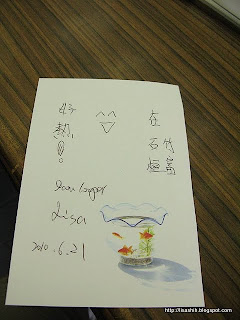 在石垣
竹富
好熱!
Lisa
2010.6.21
http://lisashih.blogspot.com